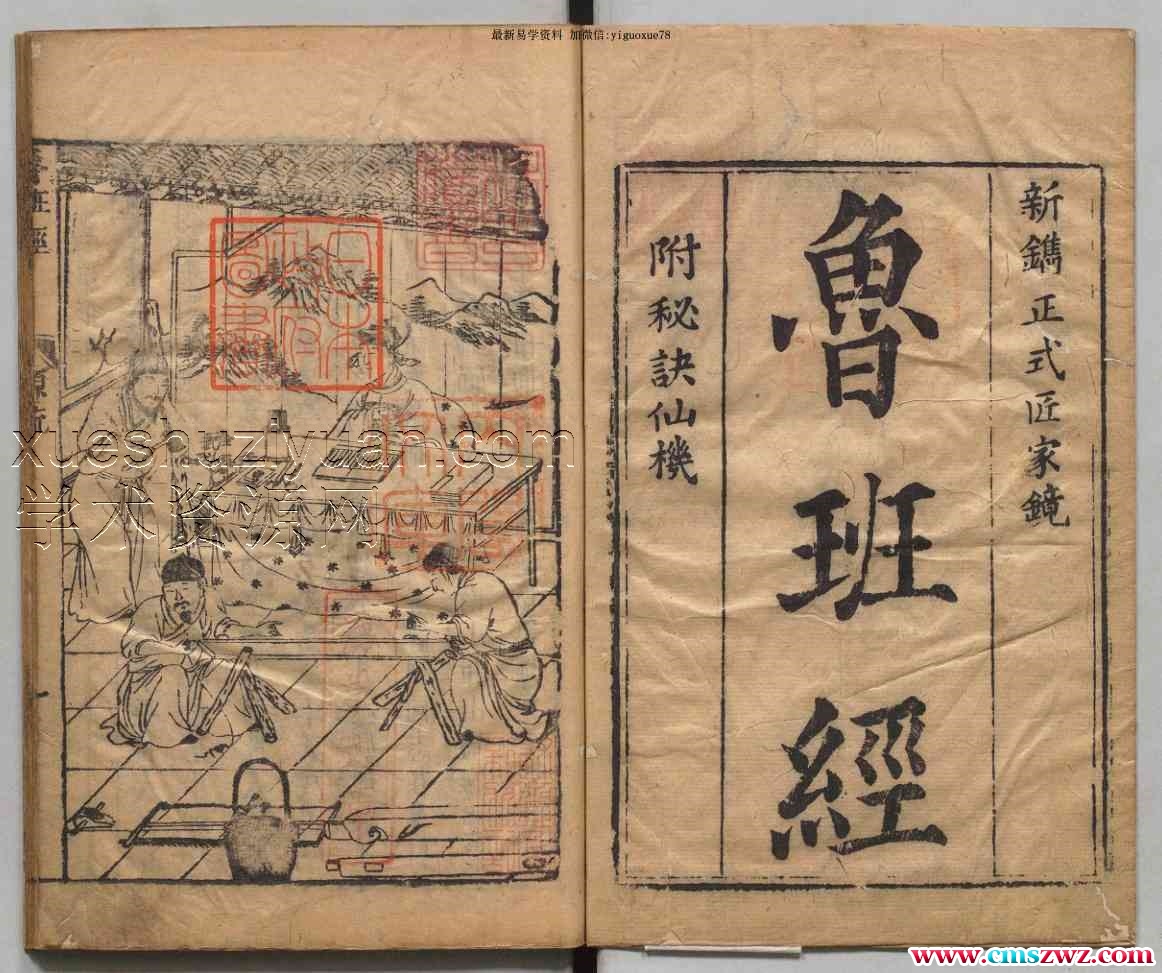 最新易学资料 加微信:yiguoxue78
新鐫正式匠家鏡
魯班經
附秘訣仙機
班經
xueshuziyuan.com
学术资源网
www.cmszwz.com